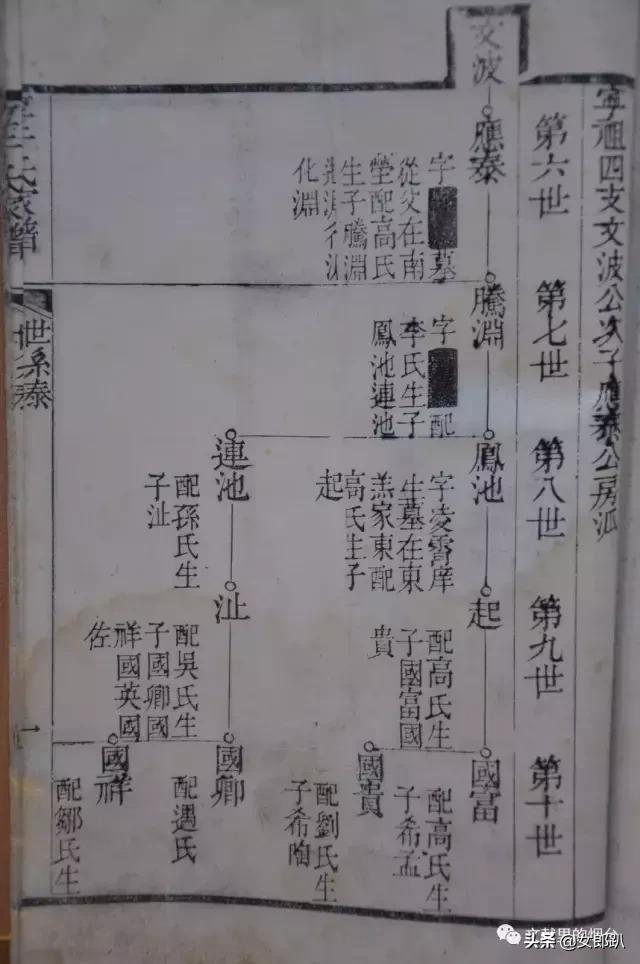 寧祖四支文波公次子應泰公房派
第六世
第七世
第八世
第九世
第十世
文波
應泰
字
墓
從父在南
塋配高氏
生子騰淵
化淵
騰淵
字
配
李氏生子
鳳池連池
鳳池
字凌霄庠
生墓在東
羔家東配
高氏生子
起
起
配高氏生
子國富國
貴
國富
配高氏生
子希孟
國貴
配劉氏生
子希陶
連池
配孫氏生
子沚
沚
配吳氏生
子國卿國
祥國英國
佐
國卿
配遇氏
國祥
配鄒氏生
氏家譜
世系泰
一
文献里的烟台
头条 @安郎趴